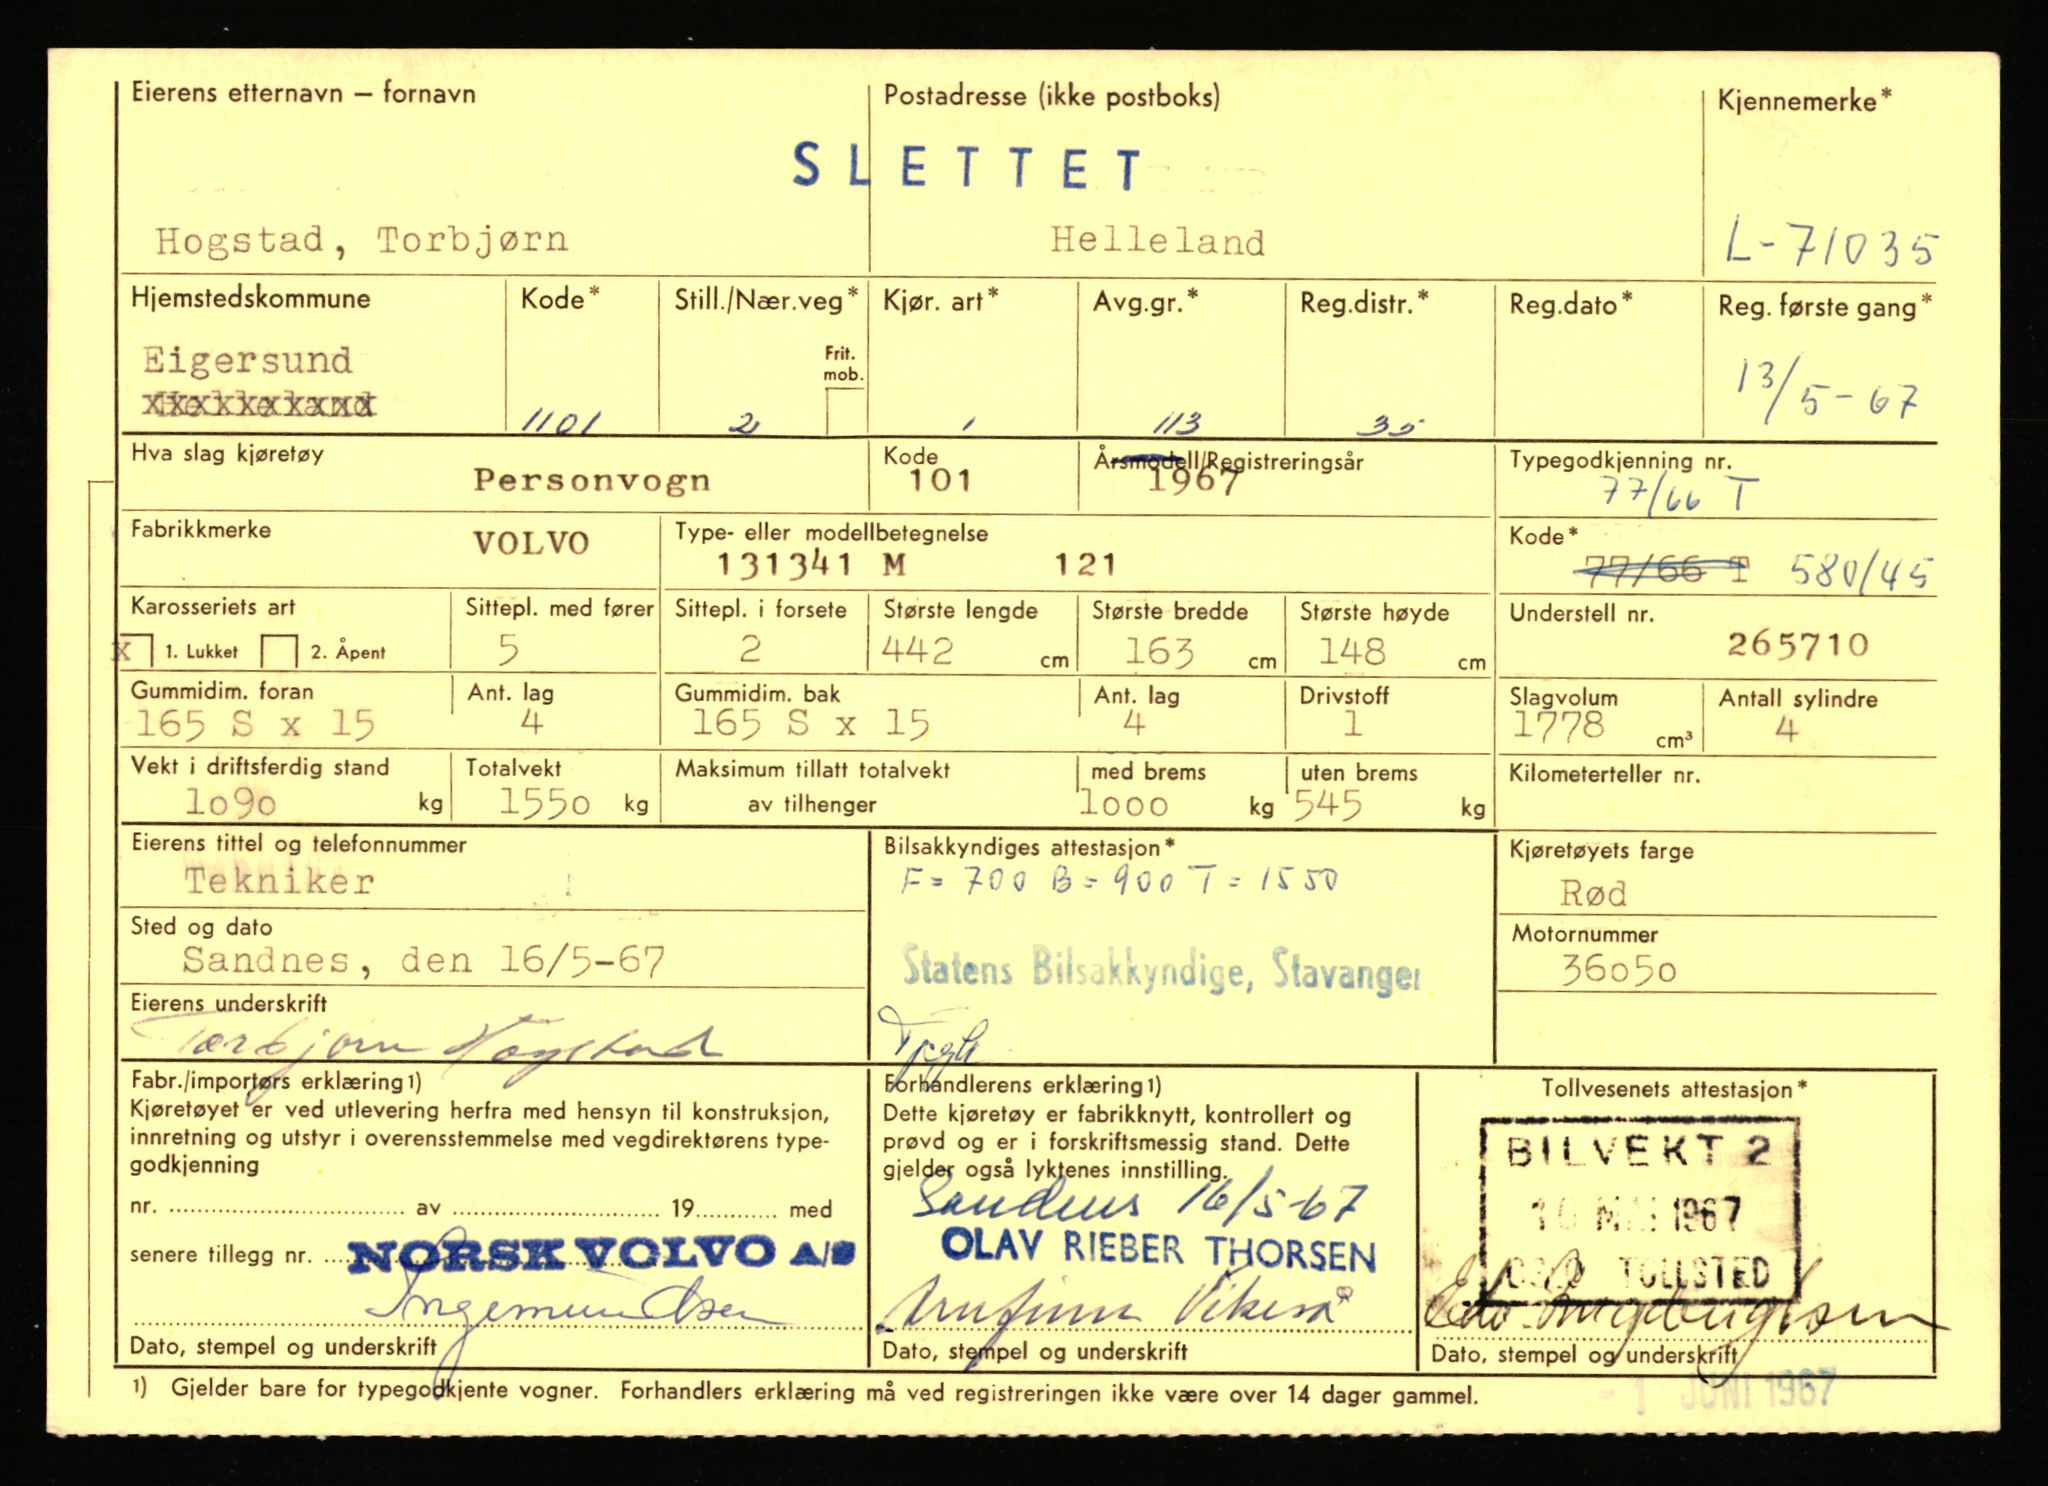 Eierens etternavn – fornavn
Postadresse (ikke postboks)
Kjennemerke*
SLETTET
Hogstad, Torbjørn
Helleland
L-71035
Hjemstedskommune
Kode*
Still./Nær.veg*
Kjør. art*
Avg.gr.*
Reg.distr.*
Reg.dato*
Reg. første gang*
Eigersund
Frit. mob.
1101
2
1
113
35
13/5-67
Hva slag kjøretøy
Personvogn
Kode
101
Årsmodell/Registreringsår
1967
Typegodkjenning nr.
77/66 T
Fabrikkmerke
VOLVO
Type- eller modellbetegnelse
131341 M 121
Kode*
77/66 T 580/45
Karosseriets art
x 1. Lukket 2. Åpent
Sittepl. med fører
5
Sittepl. i forsete
2
Største lengde
442 cm
Største bredde
163 cm
Største høyde
148 cm
Understell nr.
265710
Gummidim. foran
165 S x 15
Ant. lag
4
Gummidim. bak
165 S x 15
Ant. lag
4
Drivstoff
1
Slagvolum
1778 cm³
Antall sylindre
4
Vekt i driftsferdig stand
1090 kg
Totalvekt
1550 kg
Maksimum tillatt totalvekt
av tilhenger
med brems
1000 kg
uten brems
545 kg
Kilometerteller nr.
Eierens tittel og telefonnummer
Tekniker
Bilsakkyndiges attestasjon*
F= 700 B= 900 T= 1550
Kjøretøyets farge
Rød
Sted og dato
Sandnes, den 16/5-67
Statens Bilsakkyndige, Stavanger
Motornummer
36050
Eierens underskrift
Torbjørn Hogstad
Fabr./importørs erklæring1)
Kjøretøyet er ved utlevering herfra med hensyn til konstruksjon,
innretning og utstyr i overensstemmelse med vegdirektørens type-
godkjenning
nr. av 19 med
senere tillegg nr.
NORSK VOLVO A/S
Ingemundsen
Dato, stempel og underskrift
Forhandlerens erklæring1)
Dette kjøretøy er fabrikknytt, kontrollert og
prøvd og er i forskriftsmessig stand. Dette
gjelder også lyktenes innstilling.
Sandnes 16/5-67
OLAV RIEBER THORSEN
Dato, stempel og underskrift
Tollvesenets attestasjon*
BILVEKT 2
16 MAI 1967
OSLO TOLLSTED
Dato, stempel og underskrift
1) Gjelder bare for typegodkjente vogner. Forhandlers erklæring må ved registreringen ikke være over 14 dager gammel.
- 1 JUNI 1967